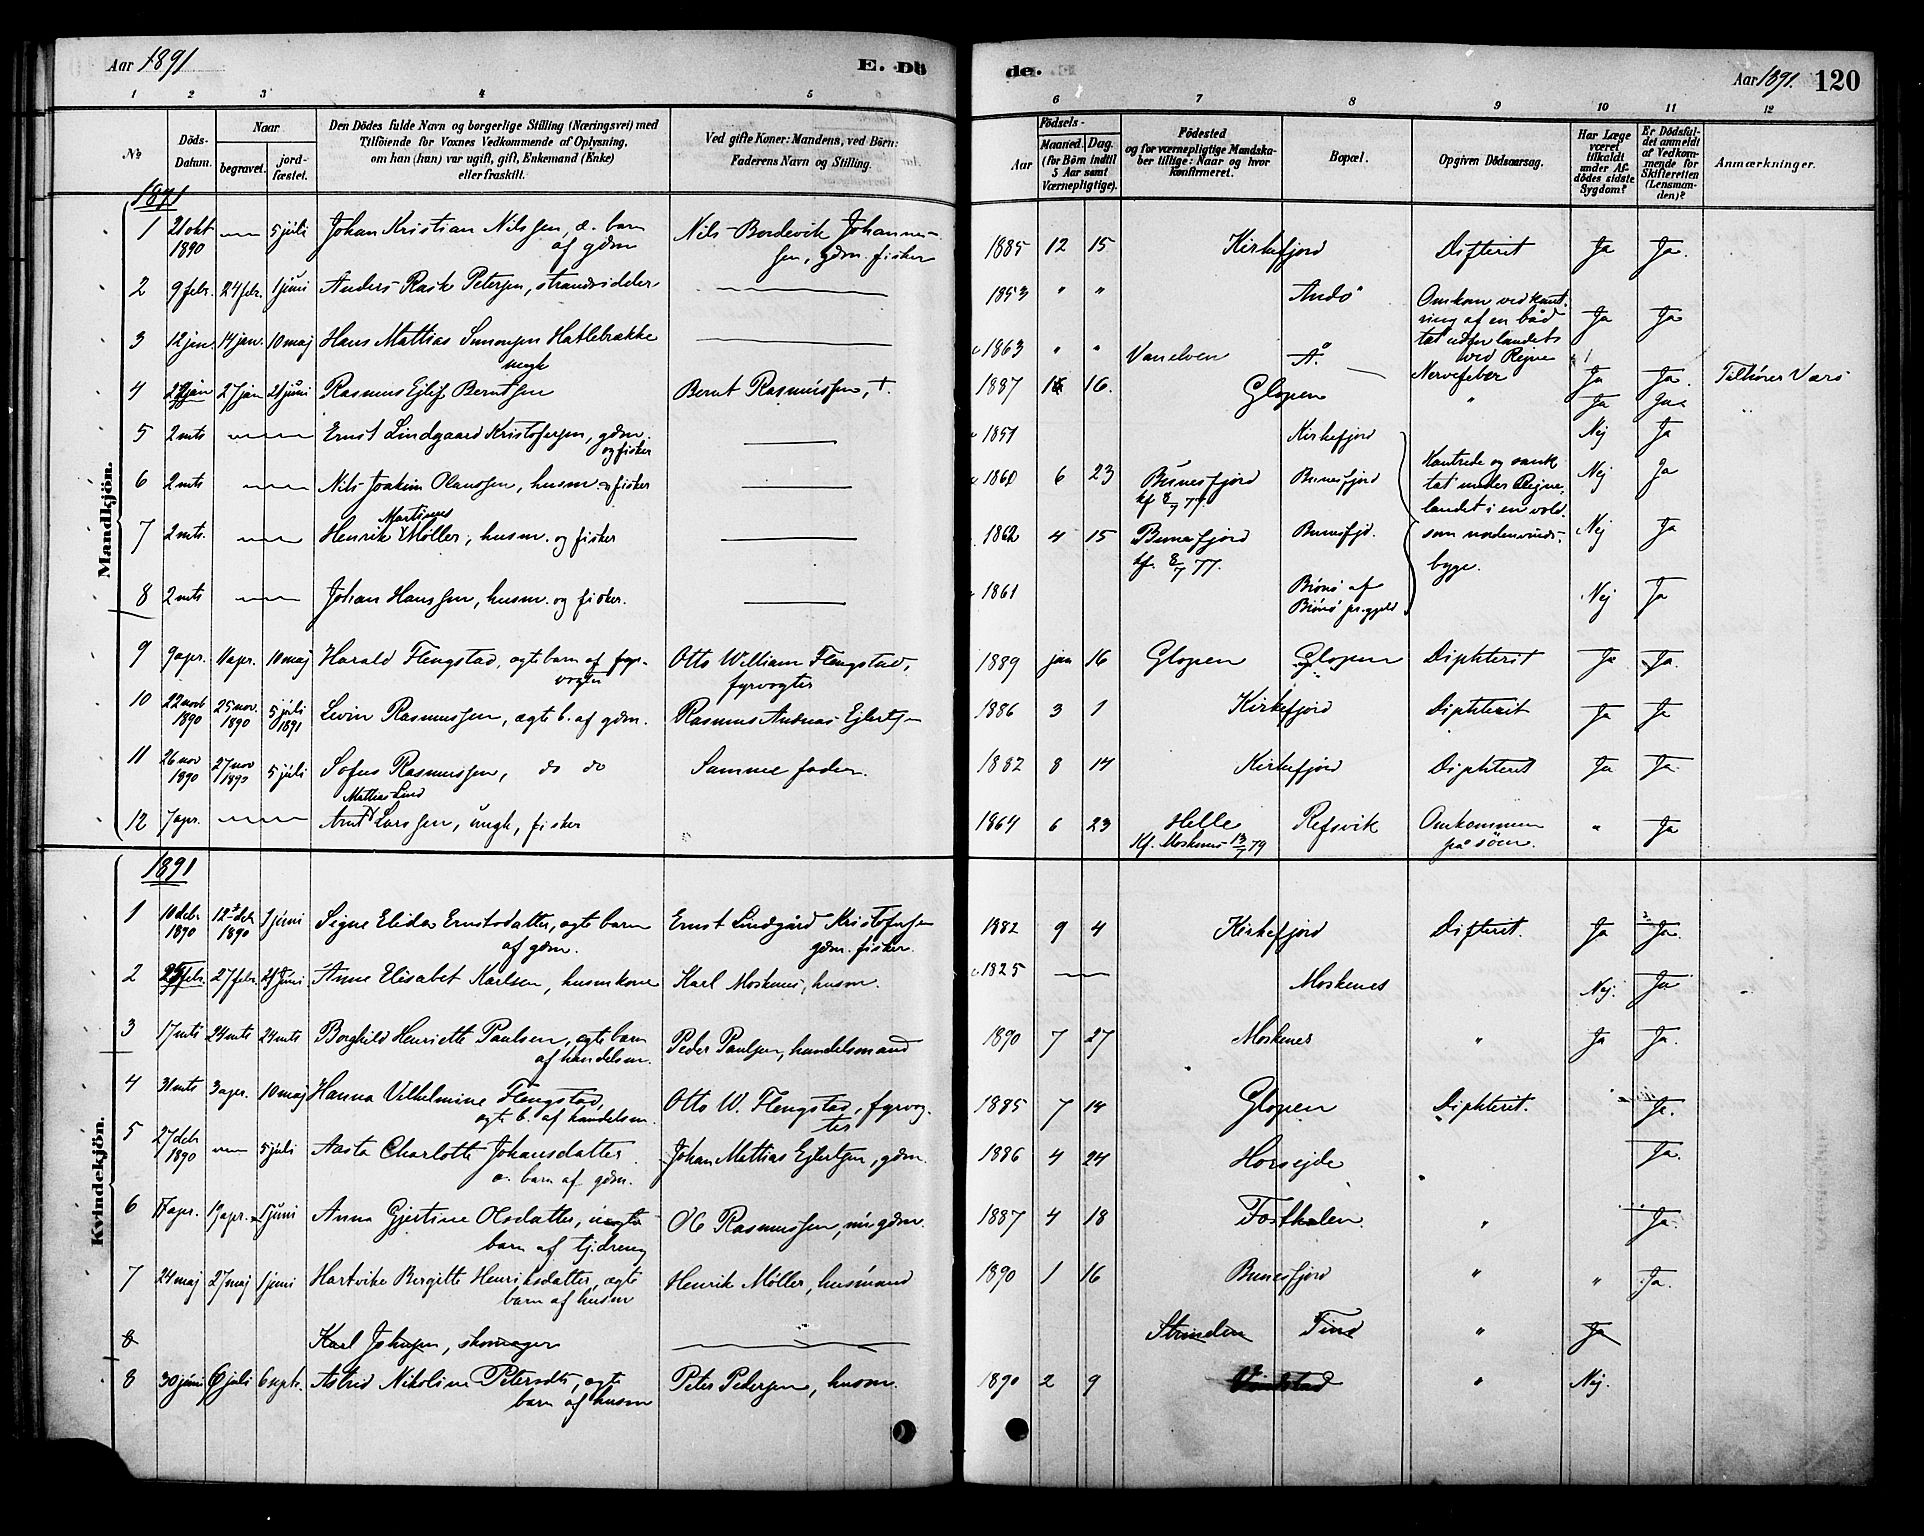 Aar 1891
E. Dö
de.
Aar 1891.
120
1 2 3 4 5
6 7 8 9 10 11 12
№
Döds-Datum.
Naar
begravet.
jord-fæstet.
Den Dödes fulde Navn og borgerlige Stilling (Næringsvei) med
Tilföiende for Voxnes Vedkommende af Oplysning,
om han (hun) var ugift, gift, Enkemand (Enke)
eller fraskilt.
Ved gifte Koner: Mandens, ved Börn:
Faderens Navn og Stilling.
Födsels-
Aar
Maaned. Dag.
(for Börn indtil
5 Aar samt
Værnepligtige).
Födested
og for værnepligtige Mandska-
ber tillige: Naar og hvor
konfirmeret.
Bopæl.
Opgiven Dödsaarsag.
Har Læge
været
tilkaldt
under Af-
dödes sidste
Sygdom?
Er Dödsfal-
det anmeldt
af Vedkom-
mende for
Skifteretten
(Lensman-
den)?
Anmærkninger.
Mandkjön.
1891
1 21 okt 1890 — 5 juli Johan Kristian Nilssen, æ. barn af gdm Nils Bordevik Johannessen, gdm. fisker 1885 12 15 Kirkefjord Difterit Ja Ja.
2 9 febr. 24 febr. 1 juni Anders Rask Petersen, strandsidder — 1853 " " Andø Omkom ved kant-ring af en båd tat udfor landets ved Rejne Ja Ja
3 12 jan. 14 jan. 10 maj Hans Mattias Simonsen Hatlebrække ungk — 1863 " " Vanelven Å. Nervefeber Ja Ja. Tilhører Værö
4 jan 27 jan 21 juni Rasmus Ejlif Berntsen Bernt Rasmussen, +. 1887 16. Glopen " Ja Ja "
5 2 mts — Ernst Lindgaard Kristofersen, gdm. og fisker — 1851 Kirkefjord Nej Ja
6 2 mts — Nils Joakim Olaussen, husm. og fisker — 1860 6 23 Bunesfjord kf 8/7 77. Bunesfjord Kantrede og sank tat under Rejne-landet i en vold-som nordenvinds-byge. Nej Ja
7 2 mts. — Henrik Martinus Møller, husm. og fisker — 1862 4 15 Bunesfjord kf. 8/7 77. Bunesfjd. Nej Ja
8 2 mts — Johan Hanssen, husm. og fisker. — 1861 Brönö af Brönö pr.gjeld Nej Ja
9 9 apr. 11 apr. 10 maj Harald Flengstad, ægte barn af fyr-vogter Otto William Flengstad, fyrvogter 1889 jan 16 Glopen Glopen Diphterit Ja Ja.
10 22 novb 1890 25 nov. 1890 5 juli 1891 Levin Rasmussen, ægte b. af gdm. Rasmus Andreas Ejlertsen 1886 3 1 Kirkefjord Diphterit Ja Ja
11 26 nov 1890 27 nov 1890 5 juli Sofus Rasmussen, do do Samme fader. 1882 8 14 Kirkefjord Diphterit Ja Ja
12 7 apr. — Arnt Mattias Lind Larssen, ungk, fisker 1864 6 23 Helle Kf. Moskenes 13/7 79 Refsvik Omkommen på søen. " Ja
Kvindekjön.
1891
1 10 debr 1890 12 deb 1890 1 juni Signe Elida Ernstsdatter, ægte barn af gdm. Ernst Lindgård Kristofersen gdm. fisker. 1882 9 4 Kirkefjord Difterit. Ja Ja.
2 febr. 27 febr. 21 juni Anne Elisabet Karlsen, husmkone Karl Moskenes, husm. 1825 — Moskenes Nej. Ja
3 17 mts 24 mts 24 mts Borghild Henriette Paulsen, ægte barn af handelsm. Peder Paulsen, handelsmand 1890 7 27 Moskenes " Ja Ja.
4 31 mts 3 apr. 10 maj Hanna Vilhelmine Flengstad, ægte b. af handelsm. Otto W. Flengstad, fyrvogter 1885 7 14 Glopen Diphterit. Ja.
5 27 debr 1890 — 5 juli Aasta Charlotte Johansdatter æ. barn af gdm. Johan Mattias Ejlertsen, gdm. 1886 4 24 Horsejde Ja.
6 17 apr. 19 apr. 1 juni Anna Gjertine Olsdatter, uægte barn af tj.dreng Ole Rasmussen, gdm. 1887 4 18 Forsthalen " Ja.
7 24 maj 27 maj 1 juni Hartvike Bergitte Henriksdatter, ægte barn af husm Henrik Møller, husmand 1890 1 16 Bunesfjord " " Ja.
8 Karl Johnsen, skomager — Strinden Tind " Ja
8 30 juni 6 juli 6 septr. Astrid Nikoline Petersdtr, ægte barn af husm Peter Pedersen, husm. 1890 2 9 Vindstad " Nej.